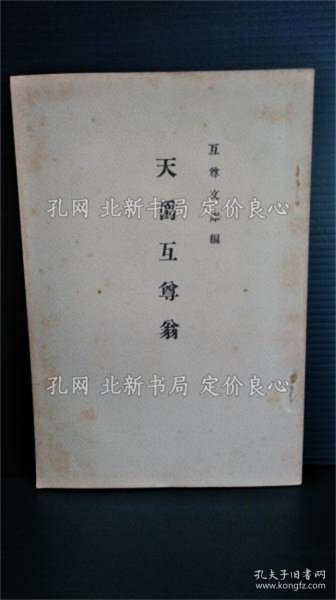 互尊文庫編
天留互尊翁
孔网 北新书局 定价良心
孔网 北新书局 定价良心
孔夫子旧书网
www.kongfz.com